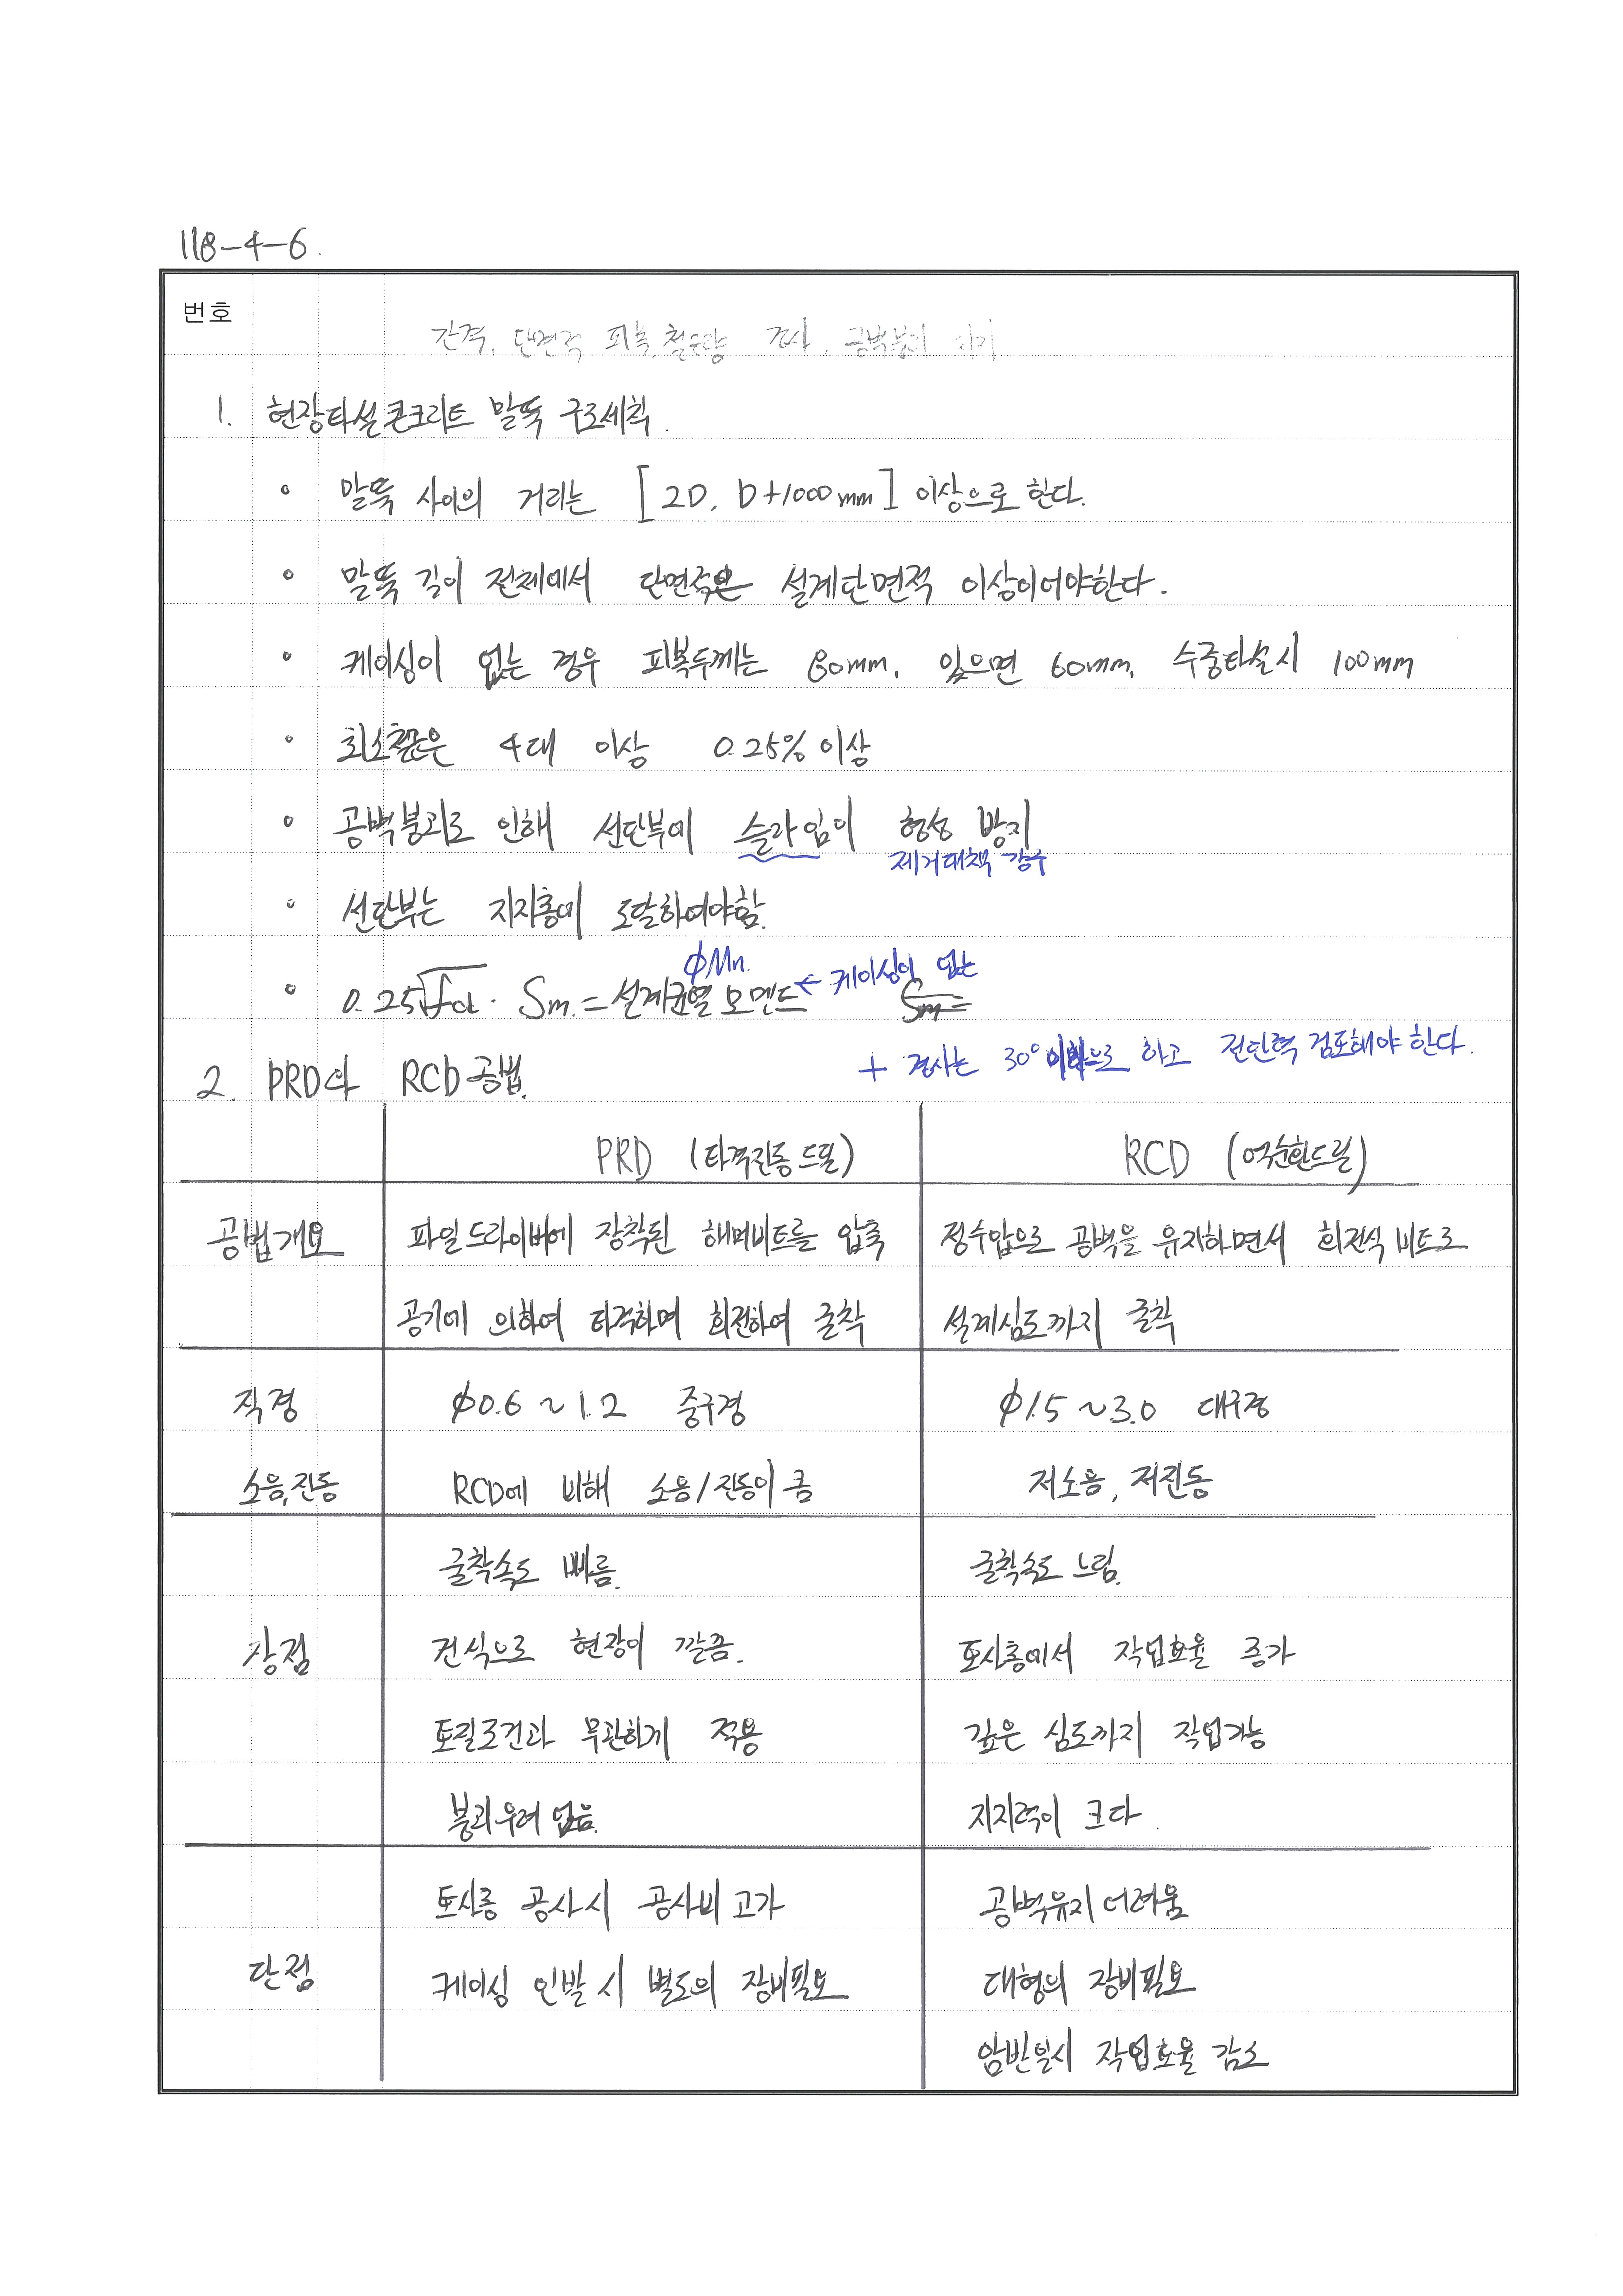 118-4-6.
번호
간격, 단면적 피복, 철근량 경사, 공벽붕괴
1. 현장타설콘크리트 말뚝 구조세칙.
• 말뚝 사이의 거리는 [2D. D+1000mm] 이상으로 한다.
• 말뚝 길이 전체에서 단면적은 설계단면적 이상이어야한다.
• 케이싱이 없는 경우 피복두께는 80mm. 있으면 60mm. 수중타설시 100mm
• 최소철근은 4대 이상 0.25% 이상
• 공벽붕괴로 인해 선단부에 슬라임이 형성 방지
제거대책 강구
• 선단부는 지지층에 도달하여야함.
ϕMn. ← 케이싱이 없는
• 0.25√fck · Sm. = 설계균열모멘트 Sm=
+ 경사는 30° 이하으로 하고 전단력 검토해야 한다.
2. PRD와 RCD공법.
PRD (타격진동드릴) RCD (역순환드릴)
공법개요 파일드라이버에 장착된 해머비트를 압축 정수압으로 공벽을 유지하면서 회전식 비트로
공기에 의하여 타격하며 회전하여 굴착 설계심도까지 굴착
직경 ϕ0.6 ~ 1.2 중구경 ϕ1.5 ~ 3.0 대구경
소음,진동 RCD에 비해 소음/진동이 큼 저소음, 저진동
굴착속도 빠름. 굴착속도 느림.
장점 건식으로 현장이 깔끔. 토사층에서 작업효율 증가
토질조건과 무관하게 적용 깊은 심도까지 작업가능
붕괴우려 없음. 지지력이 크다.
토사층 공사시 공사비 고가 공벽유지 어려움
단점 케이싱 인발 시 별도의 장비필요 대형의 장비필요
암반일시 작업효율 감소